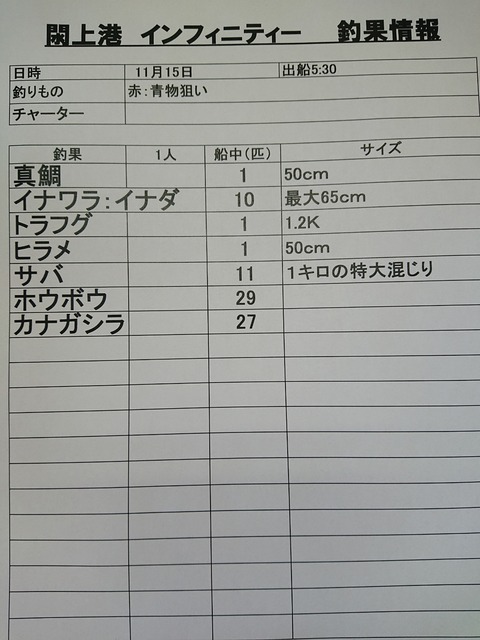 閖上港 インフィニティー 釣果情報
日時 11月15日 出船5:30
釣りもの 赤:青物狙い
チャーター
釣果 1人 船中(匹) サイズ
真鯛 1 50cm
イナワラ:イナダ 10 最大65cm
トラフグ 1 1.2K
ヒラメ 1 50cm
サバ 11 1キロの特大混じり
ホウボウ 29
カナガシラ 27